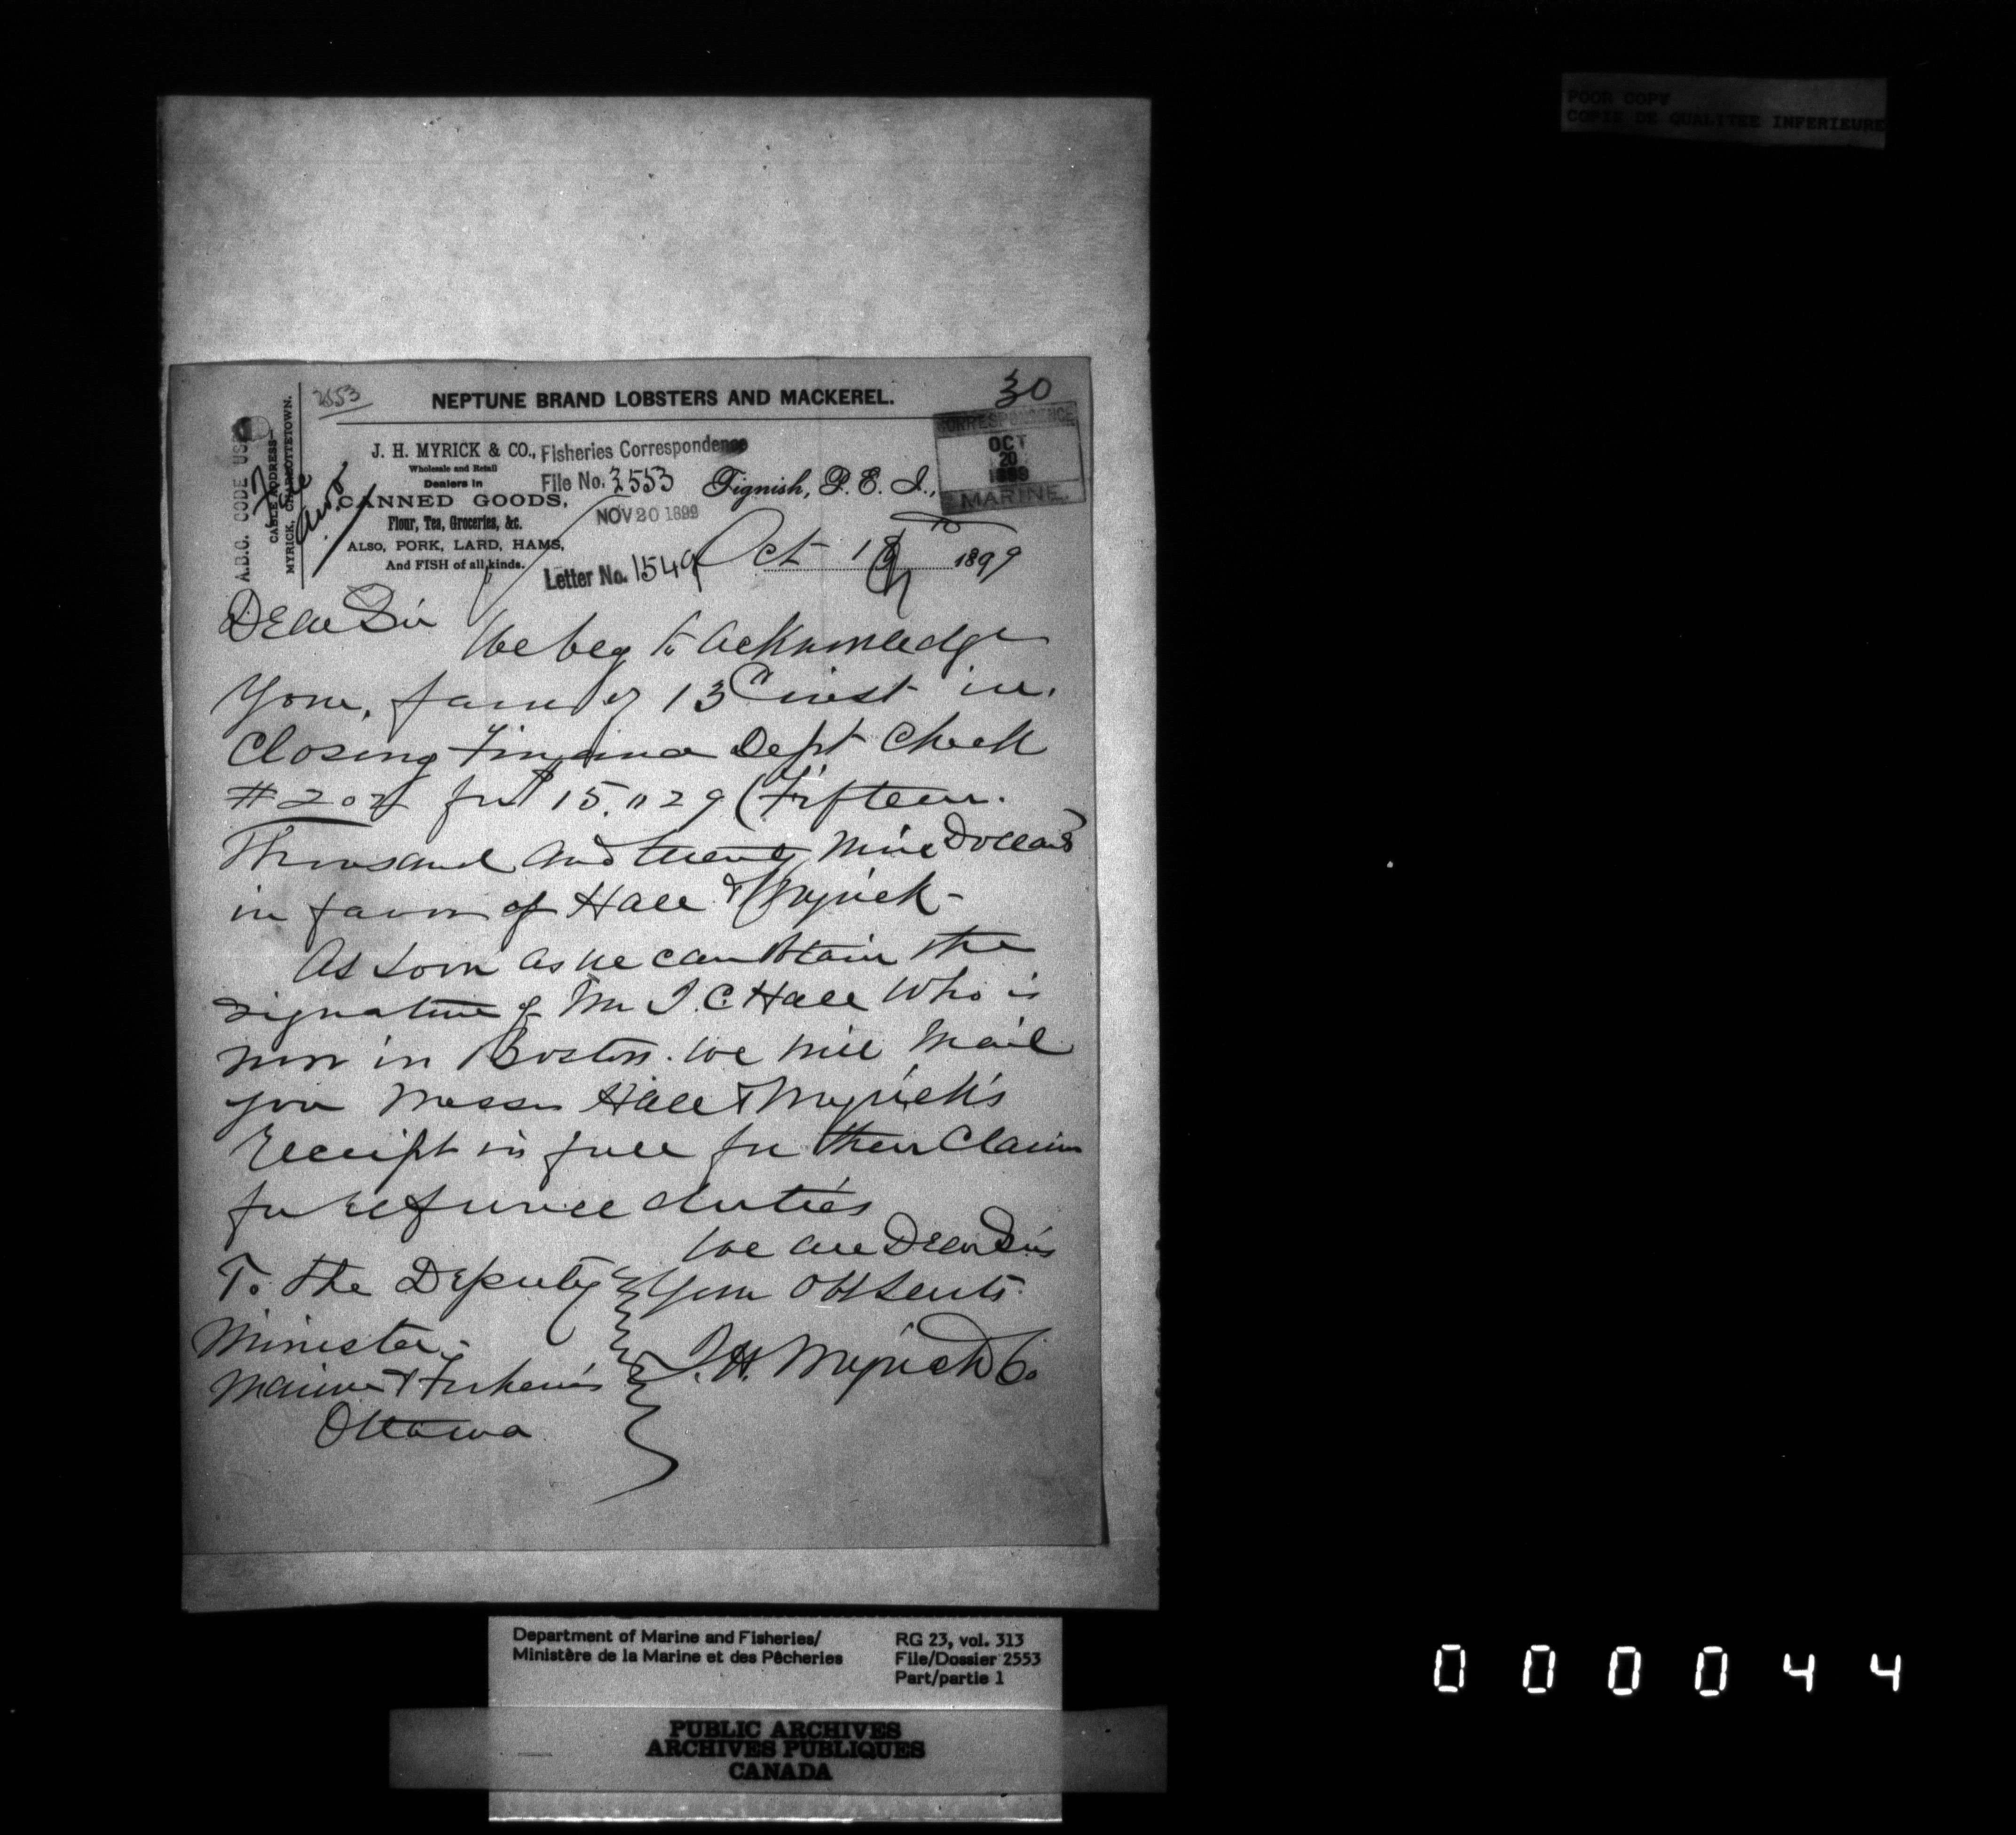 POOR COPY
COPIE DE QUALITEE INFERIEURE
2553
NEPTUNE BRAND LOBSTERS AND MACKEREL.
30
A.B.C. CODE USED
CABLE ADDRESS
MYRICK, CHARLOTTETOWN.
J. H. MYRICK & CO.,
Wholesale and Retail
Dealers in
CANNED GOODS,
Flour, Tea, Groceries, &c.
ALSO, PORK, LARD, HAMS,
And FISH of all kinds.
Fisheries Correspondence
File No. 2553
NOV 20 1899
Letter No. 1549
CORRESPONDENCE
OCT
20
1899
MARINE.
Tignish, P. E. I.,
Oct 1899
Dear Sir
We beg to acknowledge
Your favor of 13th inst in.
Closing Finance Dept Check
for $15,029 (Fifteen.
Thousand and twenty Nine Dollars
in favor of Hall & Myrick -
As soon as we can obtain the
signature of Mr I. C. Hall who is
now in Boston. we will mail
you Messrs Hall & Myrick's
Receipt in full for their Claim
for refund duties
We are Dear Sir
Your Obt Servts.
J. H. Myrick & Co
To the Deputy
Minister
Marine & Fisheries
Ottawa
Department of Marine and Fisheries/
Ministère de la Marine et des Pêcheries
RG 23, vol. 313
File/Dossier 2553
Part/partie 1
PUBLIC ARCHIVES
ARCHIVES PUBLIQUES
CANADA
000044